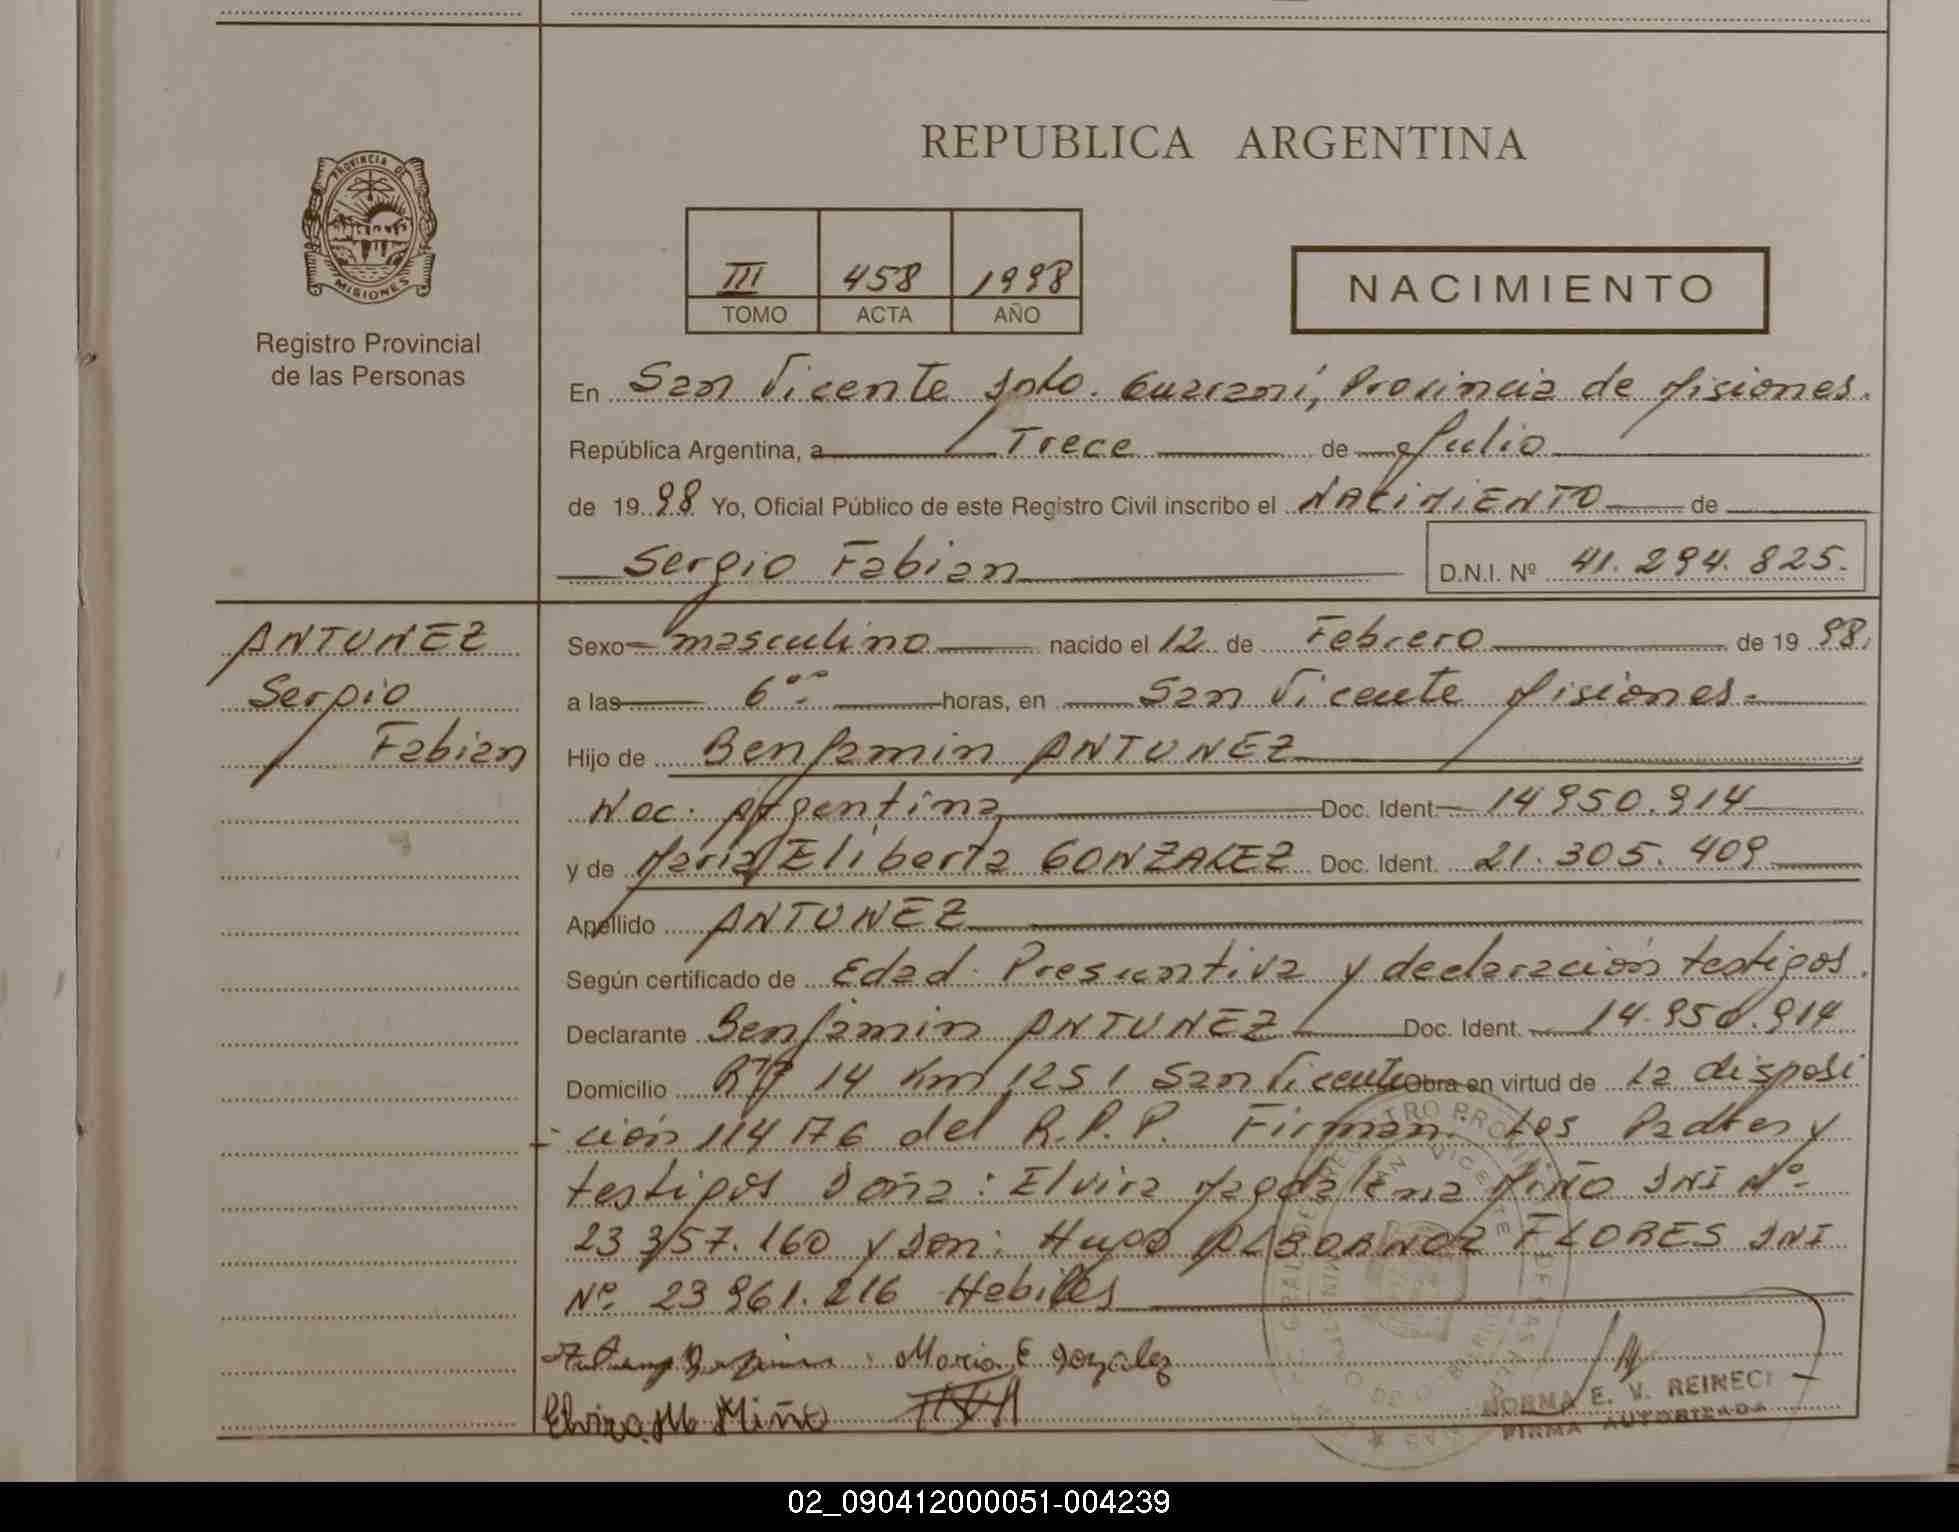 REPUBLICA ARGENTINA
PROVINCIA DE
MISIONES
Registro Provincial
de las Personas
III 458 1998
TOMO ACTA AÑO
NACIMIENTO
En San Vicente Dpto. Guaraní, Provincia de Misiones.
República Argentina, a Trece de Julio
de 1998 Yo, Oficial Público de este Registro Civil inscribo el NACIMIENTO de
Sergio Fabian D.N.I. Nº 41.294.825.
ANTUNEZ
Sergio
Fabian
Sexo masculino nacido el 12 de Febrero de 1998.
a las 6°° horas, en San Vicente Misiones
Hijo de Benjamin ANTUNEZ
Nac. Argentina Doc. Ident. 14950.914
y de Maria Eliberta GONZALEZ Doc. Ident. 21.305.409
Apellido ANTUNEZ
Según certificado de Edad Presuntiva y declaración testigos.
Declarante Benjamin ANTUNEZ Doc. Ident. 14.950.914
Domicilio 14 Km 1251 San Vicente Obra en virtud de la disposi
ción 114/76 del R.P.P. Firman Los Padres y
testigos Doña: Elvira Magdalena MIÑO DNI Nº
23 357.160 y Don: Hugo ALBORNOZ FLORES DNI
Nº 23 961.216 Habiles
Maria E Gonzalez
Elvira M Miño
NORMA E. V. REINECI
FIRMA AUTORIZADA
02_090412000051-004239